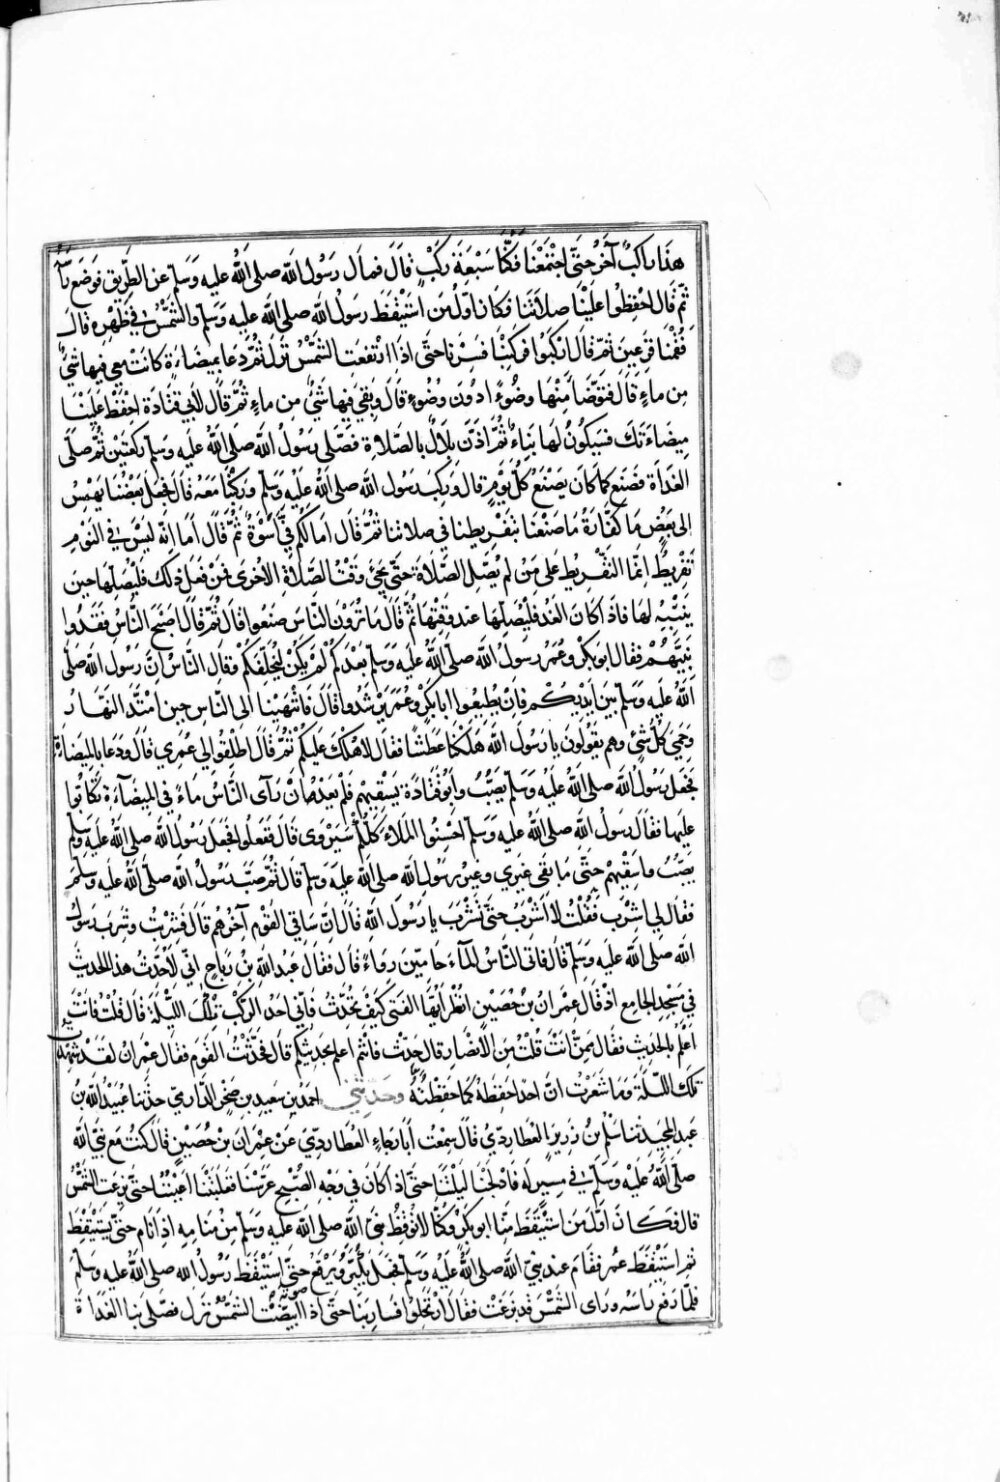 هَذَا رَاكِبٌ آخَرُ حَتَّى اجْتَمَعْنَا فَكُنَّا سَبْعَةَ رَكْبٍ قَالَ فمال رَسُولُ الله صلى اللهُ عليه وَسَلّم عن الطَّرِيقِ فَوَضَعَ رَأْسَهُ
ثُمّ قَال احْفِظُوا عَلَيْنَا صلاتَنَا فَكَان اوّلُ مَن اسْتَيْقَظَ رسُولُ الله صلى الله عليه وَسَلّم وَالشَّمْسُ في ظَهْرِه قالَ
فَقُمْنَا فَزِعِينَ ثمّ قَالَ ارْكَبُوا فَرَكِبْنَا فَسِرْنَا حَتى اذَا ارْتفَعَت الشَّمْسُ نَزلَ ثمّ دَعَا بمِيضَاءَةٍ كَانتْ مَعِي فيها شَيْءٌ
مِن مَاءٍ قَالَ فتَوَضّأ مِنْهَا وضُوءًا دُونَ وُضُوءٍ قَالَ وبَقيَ فِيهَا شَيْءٌ من مَاءٍ ثُمّ قَال لأبي قتَادَة احْفَظْ عَلَيْنَا
مِيضَاءَتَك فسَيَكُونُ لَها نَبَاءٌ ثُمّ اَذّنَ بِلَالٌ بِالصَّلاةِ فَصَلّى رسُولُ الله صَلى اللهُ عليه وَسَلّم ركعَتَيْن ثُمّ صَلّى
الغَدَاةَ فَصَنَع كمَا كَانَ يَصْنَعُ كُلّ يَوْمٍ قال وَرَكِبَ رَسُول الله صلى اللهُ عَلَيْهِ وَسَلّم وَرَكِبْنَا مَعَهُ قَال فجَعَلَ بَعْضُنَا يَهْمِسُ
الى بَعْضٍ مَا كفّارَةُ مَا صَنَعْنَا بتَفْرِيطِنا في صلاتنا ثمّ قَال أمَا لكُمْ فِيَّ أسْوَةٌ ثُمّ قَالَ أمَا إنّه لَيْسَ في النّوْمِ
تَفْرِيطٌ إنّما التّفْرِيط عَلى مَن لمْ يُصَلّ الصّلاةَ حَتى يَجِيءَ وَقْتُ الصّلاةِ الأخْرَى فمَنْ فَعَلَ ذلكَ فليُصَلّهَا حين
يَنتَبِهُ لهَا فاذَا كانَ الغَدُ فَليُصَلّها عند وَقتِهَا ثُمّ قَالَ مَا تُرَوْنَ النّاسَ صَنَعوا قَال ثُمّ قَالَ أصْبَحَ النّاسُ فَقَدُوا
نَبِيّهُمْ فقال ابوبكر وعُمر رسُولُ الله صَلى اللهُ عليه وَسَلّم بَعْدَكُمْ لَمْ يَكُنْ لِيُخَلّفَكُمْ وقال النّاسُ إنّ رَسُول الله صلى
اللهُ عَليه وَسَلّم بين أيْدِيكُم فَان يُطيعُوا ابا بَكرٍ وعُمَر يَرْشُدُوا قَالَ فانْتَهَيْنَا الى النّاسِ حِينَ امْتَدّ النّهَارُ
وحَمِيَ كُلّ شَيْءٍ وهم يَقُولون يا رَسُول الله هَلَكْنَا عَطِشْنَا فقَال لا هُلْكَ عليكُمْ ثُمّ قَالَ اطْلِقُوا لي غُمَرِي قَال وَدَعَا بالمِيضَاءَةِ
فجَعَل رَسُولُ الله صلى اللهُ عَلَيْه وَسَلّم يَصُبّ وابُو قَتَادَة يَسْقيهِم فَلَمْ يَعْدُ أنْ رَأى النّاسُ مَاءً في المِيضَاءَةِ تَكَابّوا
عَليها فقَال رسُول الله صلى الله عليه وَسَلم أحْسِنُوا المَلاءَ كلّكُمْ سَيَرْوَى قال فَفَعَلُوا فجَعَل رَسُول الله صلى الله عليه وسلم
يَصُبّ واسْقِيهِم حَتّى مَا بَقى غيرِي وغير رسُول الله صلى الله عليه وَسَلم قال ثُمّ صَبّ رَسُولُ الله صلى اللهُ عليه وسَلّم
فقال لي اشْرَبْ فَقُلْتُ لا أشْرَبُ حَتى تَشْرَبَ يا رَسُولَ الله قال إنّ سَاقِي القَوْمِ آخِرُهُم قَالَ فَشَرِبْتُ وشَرِبَ رَسُول
الله صَلى الله عليه وَسَلّم قَالَ فاتى النّاسُ المَاءَ جَامّينَ رِوَاءً قال فقَال عَبدُ الله بْن رَبَاحٍ إنّي لأحَدّثُ هذا الحَديثَ
في مَسْجِد الجَامِع اذ قال عِمْرَانُ بن حُصَيْنٍ انْظر أيّها الفَتَى كَيفَ تُحَدّث فانّي أحَد الرّكْبِ تلْكَ الليْلَةَ قَالَ قُلْتُ فَانْتَ
أعْلَمُ بالحَدِيث فقَالَ مِمّن أنْتَ قُلْتُ مِن الأنْصَار قَال حَدّث فَانْتُم اعلَم بحَدِيثكُم قَال فحَدّثْتُ القَوْم فقَال عِمْرَانُ لقَدْ شَهِدْتُ
تلك اللّيْلَةَ ومَا شَعَرْتُ انّ احَدًا حَفِظَهُ كَمَا حَفِظْتُهُ وَحَدّثَنِي احمَد بن سَعِيد بن صَخْر الدّارِميّ حدّثنا عُبَيْدُ الله بْن
عَبدِ المجيد ثنا سَلْم بن زَرِير العُطارِديُّ قَالَ سَمِعْتُ أبا رَجَاءٍ العُطارِديّ عَنْ عِمْرَان بْن حُصَيْنٍ قَالَ كُنْتُ مَعَ نَبِيّ الله
صلى اللهُ عَلَيْه وَسَلّم في مَسِيرٍ له فَادْلَجْنَا لَيْلَتَنَا حَتى اذ اكَان في وَجْهِ الصُّبْحِ عَرّسْنَا فَغَلَبَتْنَا اَعْيُنُنَا حتى بَزَغَتِ الشّمْسُ
قال فَكَانَ أوّلَ مَن اسْتَيْقَظَ مِنّا ابو بكرٍ وكُنّا لا نُوقِظُ نبيّ الله صلى الله عليه وَسَلم مِنْ مَنَامِه اذا نَام حتى يَسْتَيْقِظَ
ثم اسْتَيْقَظَ عُمر فقَام عند نبيّ الله صَلى اللهُ عَلَيْه وَسَلّم فجَعَل يُكَبّر ويَرْفَعُ صوته حَتى اسْتَيْقَظ رَسُولُ الله صلى اللهُ عليه وسلّم
فلمّا رَفعَ راسَه وراى الشّمْسَ قد بَزَغَتْ فقال ارْتَحِلُوا فسَار بِنَا حتى اذا ابْيَضّتِ الشّمسُ نزل فصَلّى بنا الغَدَاةَ